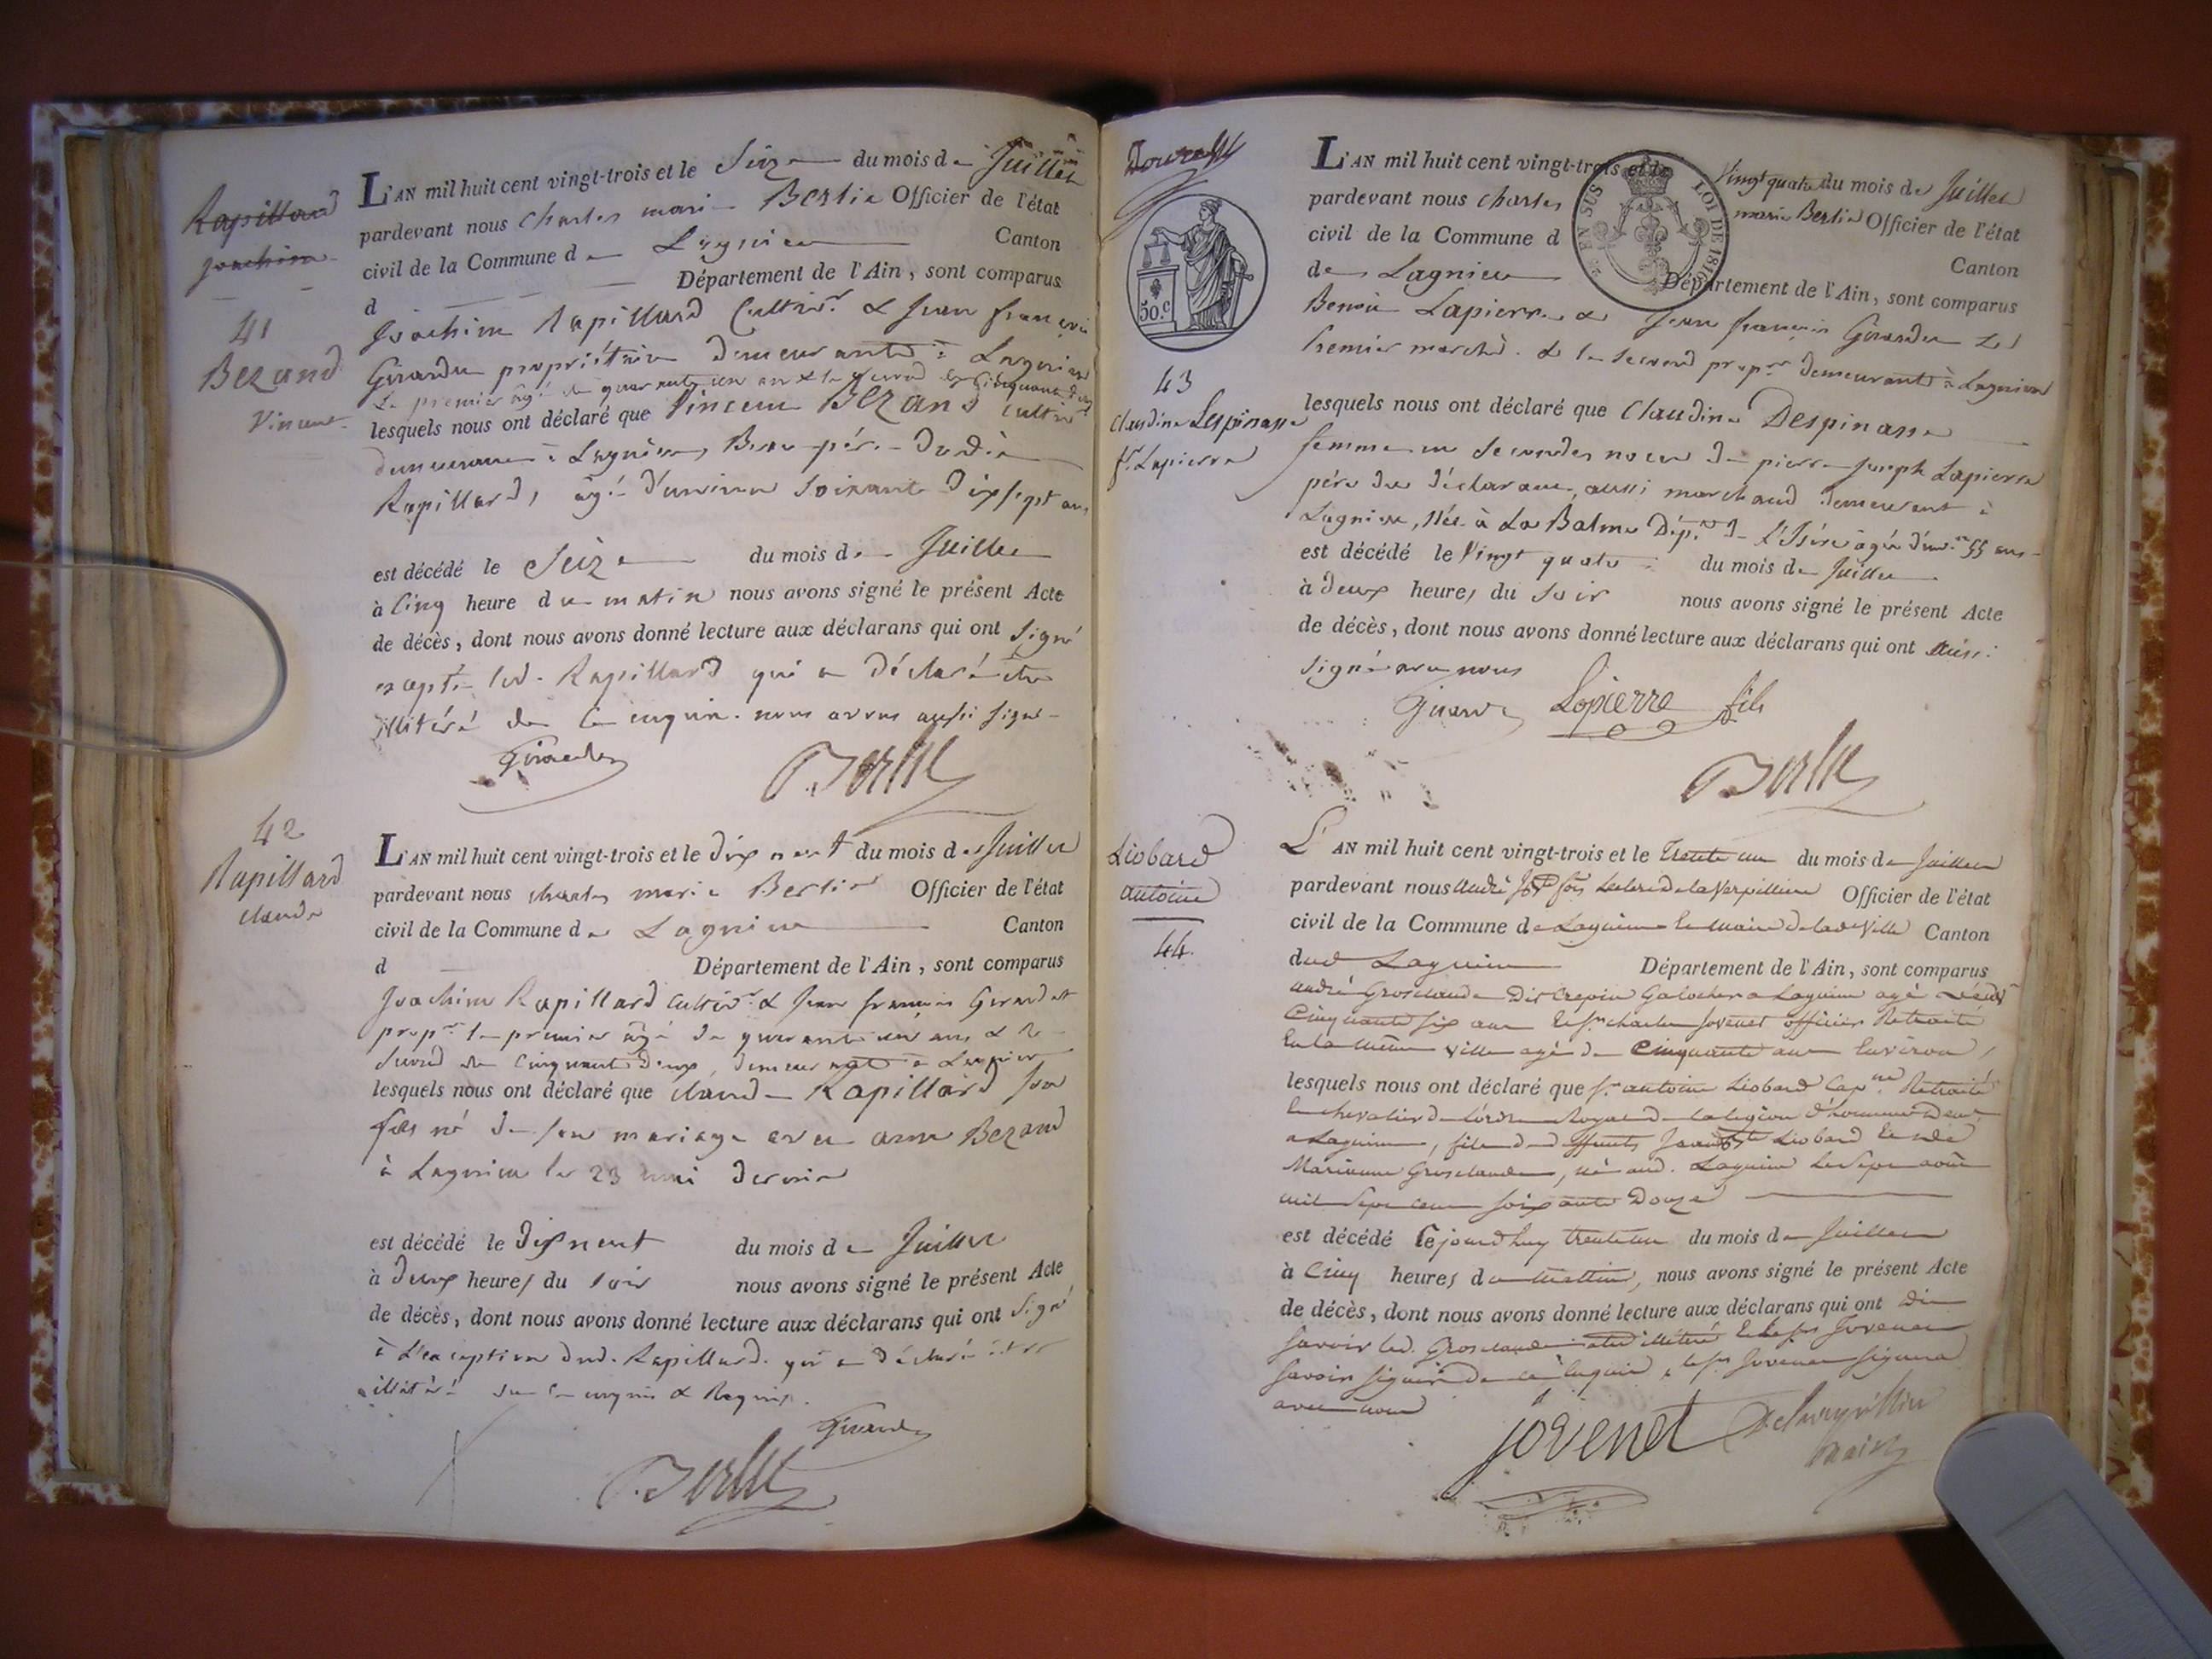 Rapillard
Joachim
41
Bezand
Vincent
L'AN mil huit cent vingt-trois et le Seize du mois de Juillet
pardevant nous Charles marie Berlie Officier de l'état
civil de la Commune de Lagnieu Canton
d Département de l'Ain, sont comparus
Joachim Rapillard Cultivr. & Jean françois
Girardet propriétaire demeurants à Lagnieu
Le premier âgé de quarante un ans & le second de Cinquante deux
lesquels nous ont déclaré que Vincent Bezand cultivr
demeurant à Lagnieu, Beau-père dudit
Rapillard, âgé d'environ soixante dix sept ans
est décédé le Seize du mois de Juillet
à Cinq heure du matin nous avons signé le présent Acte
de décès, dont nous avons donné lecture aux déclarans qui ont signé
excepté led. Rapillard qui a déclaré être
illitéré de ce enquis. nous avons aussi signé
Girardet
Berlie
42
Rapillard
claude
L'AN mil huit cent vingt-trois et le dix neuf du mois de Juillet
pardevant nous charles marie Berlie Officier de l'état
civil de la Commune de Lagnieu Canton
d Département de l'Ain, sont comparus
Joachim Rapillard Cultivr. & Jean françois Girardet
propre. le premier âgé de quarante un ans & le
second de Cinquante deux, demeurant à Lagnieu
lesquels nous ont déclaré que claude Rapillard son
fils né de son mariage avec anne Bezand
à Lagnieu le 23 mai dernier
est décédé le dix neuf du mois de Juillet
à deux heures du soir nous avons signé le présent Acte
de décès, dont nous avons donné lecture aux déclarans qui ont signé
à L'exception dud. Rapillard. qui a déclaré être
illitéré de ce enquis & Requis.
Girardet
Berlie
50.c
EN SUS
LOI DE 1816
43
Claudine Despinasse
fe. Lapierre
L'AN mil huit cent vingt-trois et le Vingt quatre du mois de Juillet
pardevant nous charles marie Berlie Officier de l'état
civil de la Commune d Canton
de Lagnieu Département de l'Ain, sont comparus
Benoit Lapierre & Jean françois Girardet Le
premier marchd. & le second propre demeurants à Lagnieu
lesquels nous ont déclaré que Claudine Despinasse
femme en secondes noces de pierre joseph Lapierre
père du déclarant, aussi marchand demeurant à
Lagnieu, Née à La Balme Dép.t de L'Isère âgée d'envon 55 ans
est décédé le Vingt quatre du mois de Juillet
à deux heures du soir nous avons signé le présent Acte
de décès, dont nous avons donné lecture aux déclarans qui ont aussi
signé avec nous
Girardet Lapierre fils
Berlie
Liobard
antoine
44.
L'AN mil huit cent vingt-trois et le Trente un du mois de Juillet
pardevant nous André Jph fois Leclerc de la Verpilliere Officier de l'état
civil de la Commune de Lagnieu le Maire de lade Ville Canton
dud Lagnieu Département de l'Ain, sont comparus
André Grosclaude Dit Crepin Galocher a Lagnieu agé
Cinquante six ans le sr charles Jovenet officier Retraité
En la même ville agé de Cinquante ans Environ,
lesquels nous ont déclaré que sr. antoine Liobard Capne. Retraité
chevalier de l'ordre Royal de la legion d'honneur demt
a Lagnieu, fils de deffunts Liobard
Marianne Grosclaude, né aud. Lagnieu le sept août
mil sept cent soixante Douze
est décédé Cejourdhuy trente un du mois de Juillet
à Cinq heures du Mattin, nous avons signé le présent Acte
de décès, dont nous avons donné lecture aux déclarans qui ont dit
savoir led. Grosclaude illétéré le sr Jovenet
savoir signer de ce enquis, le sr Jovenet signera
avec nous
jovenet Delaverpilliere
maire